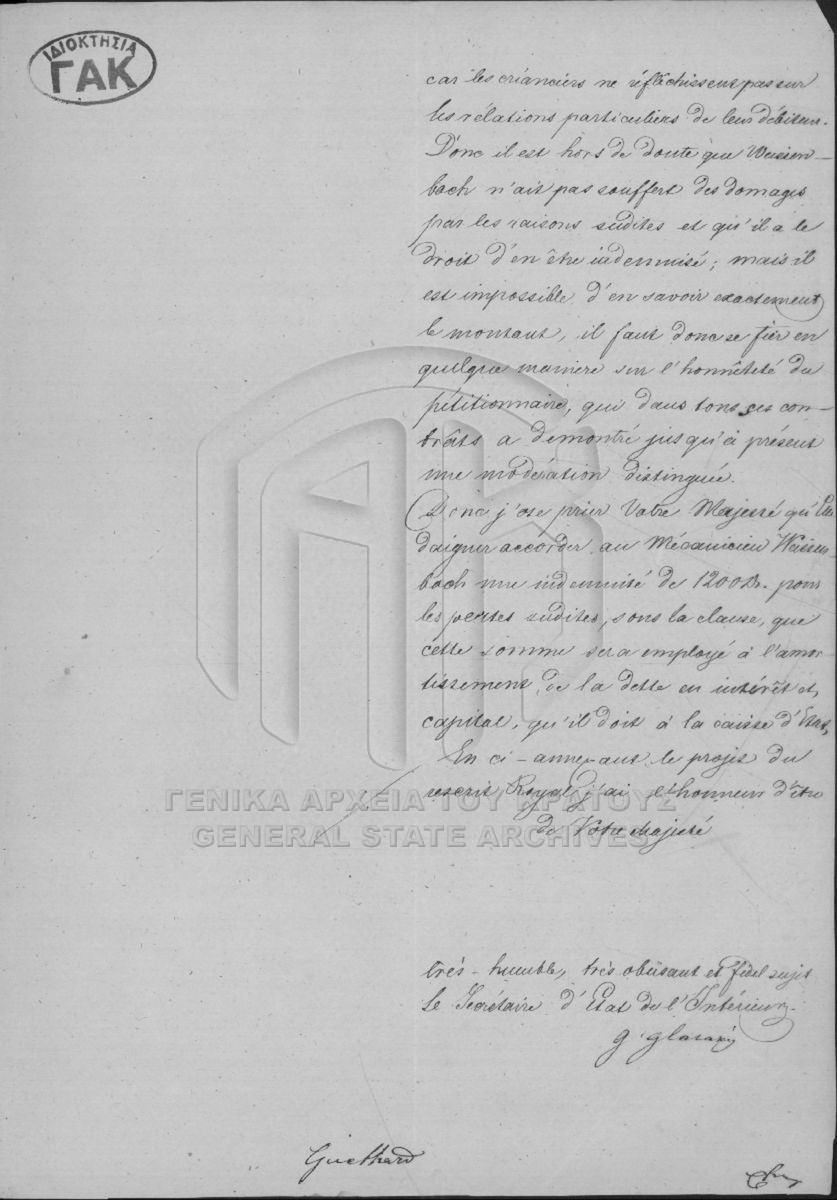 ΙΔΙΟΚΤΗΣΙΑ
ΓΑΚ
car les créanciers ne réfléchissent pas sur
les rélations particuliers de leur débiteur.
Donc il est hors de doute que Weissen-
bach n'ait pas souffert des domages
par les raisons sudites et qu'il a le
droit d'en être indemnisé; mais il
est impossible d'en savoir exactement
le montant, il faut donc se fier en
quelque maniere sur l'honnêteté du
pétitionnaire, qui dans tous ses con-
trâts a demontré jusqu'à présent
une modération distinguée.
Donc j'ose prier Votre Majesté qu'Elle
daigner accorder au Mécanicien Weissen-
bach une indemnité de 1200 Dr. pour
les pertes sudites, sous la clause, que
cette somme sera employé à l'amor-
tissement de la dette en intérêt et
capital, qu'il doit à la caisse d'Etat,
En ci-annexant le projet du
rescrit Royal j'ai l'honneur d'être
de Votre Majesté
ΓΕΝΙΚΑ ΑΡΧΕΙΑ ΤΟΥ ΚΡΑΤΟΥΣ
GENERAL STATE ARCHIVES
trés-humble, trés obéisant et fidel sujet
Le Secrétaire d'Etat de l'Intérieur
g glaraky